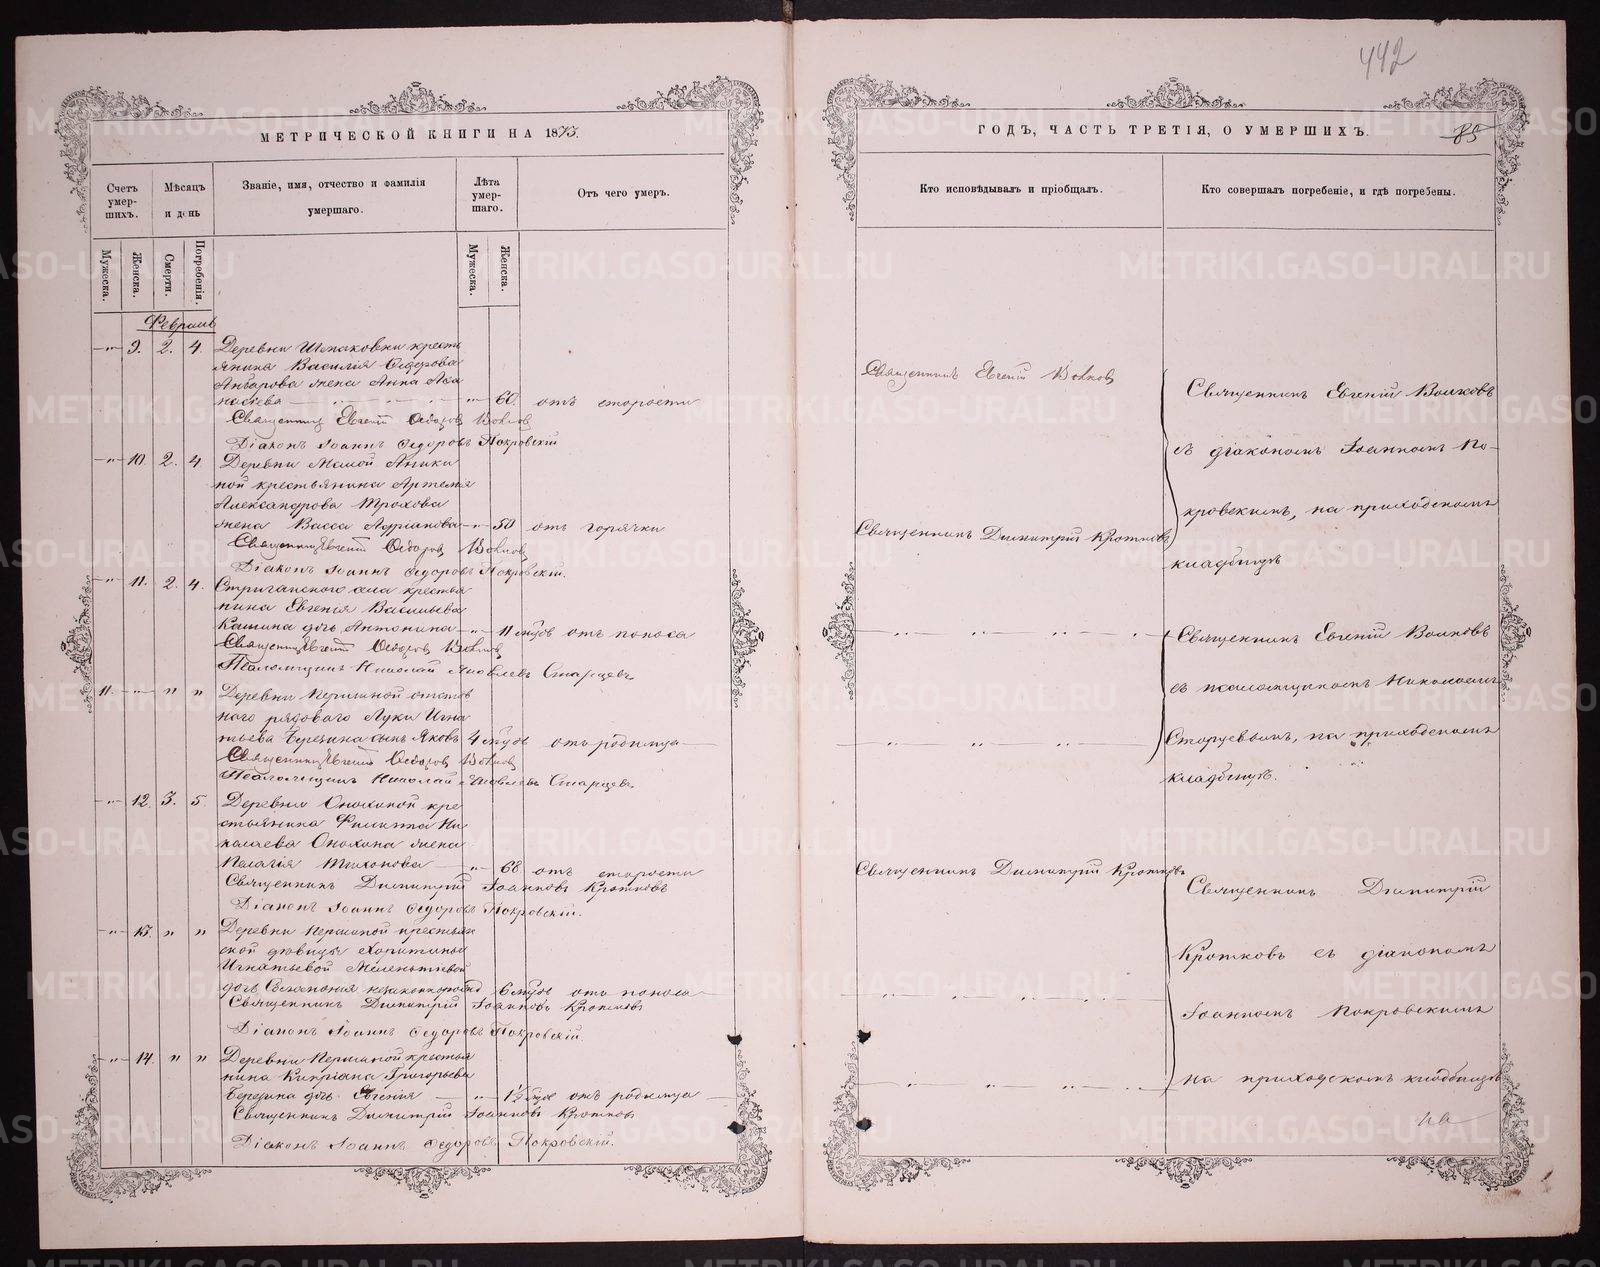 442
МЕТРИЧЕСКОЙ КНИГИ НА 1875.
Счетъ умер-шихъ.
Мѣсяцъ и день
Званіе, имя, отчество и фамилія умершаго.
Лѣта умер-шаго.
Отъ чего умеръ.
Мужеска.
Женска.
Смерти.
Погребенія.
Мужеска.
Женска.
Февраль
9. 2. 4. Деревни Шпаковки кресть
янина Василія Ѳедорова
жена Анна
60. отъ старости
Священникъ Евгеній Ѳедоровъ Волковъ
Діаконъ Іоаннъ Ѳедоровъ Покровскій
10. 2. 4. Деревни Малой Аники
ной крестьянина Артемія
Александрова Трохова
жена Васса Адріанова 50 отъ горячки
Священникъ Евгеній Ѳедоровъ Волковъ
Діаконъ Іоаннъ Ѳедоровъ Покровскій.
11. 2. 4. Стриганскаго села кресть
нина Евгенія Васильева
дочь Антонина 11 отъ поноса
Священникъ Евгеній Ѳедоровъ Волковъ
Псаломщикъ Николай Яковлевъ Старцевъ
11. " " Деревни Першиной отстав
наго рядоваго Луки Игна
тьева Березина сынъ Яковъ 4 отъ родимца
Священникъ Евгеній Ѳедоровъ Волковъ
Псаломщикъ Николай Яковлевъ Старцевъ
12. 3. 5. Деревни Онохиной кре
стьянина Филиппа Ни
колаева Онохина жена
Пелагія Тихонова 68 отъ старости
Священникъ Димитрій Іоанновъ Кротковъ
Діаконъ Іоаннъ Ѳедоровъ Покровскій.
13. " " Деревни Першиной крестьян
ской дѣвицы Харитины
Игнатьевой
дочь незаконнорожд 6 отъ поноса
Священникъ Димитрій Іоанновъ Кротковъ
Діаконъ Іоаннъ Ѳедоровъ Покровскій
14. " " Деревни Першиной крестья
нина Кипріана Григорьева
Березина дочь Евгенія 1½ отъ родимца
Священникъ Димитрій Іоанновъ Кротковъ
Діаконъ Іоаннъ Ѳедоровъ Покровскій.
ГОДЪ, ЧАСТЬ ТРЕТІЯ, О УМЕРШИХЪ.
85
Кто исповѣдывалъ и пріобщалъ.
Кто совершалъ погребеніе, и гдѣ погребены.
Священникъ Евгеній Волковъ
Священникъ Евгеній Волковъ
съ діакономъ Іоанномъ По-
кровскимъ, на приходскомъ
Священникъ Димитрій Кротковъ
кладбищѣ
Священникъ Евгеній Волковъ
съ псаломщикомъ Николаемъ
Старцевымъ, на приходскомъ
кладбищѣ.
Священникъ Димитрій Кротковъ
Священникъ Димитрій
Кротковъ съ діакономъ
Іоанномъ Покровскимъ
на приходскомъ кладбищѣ
METRIKI.GASO-URAL.RU